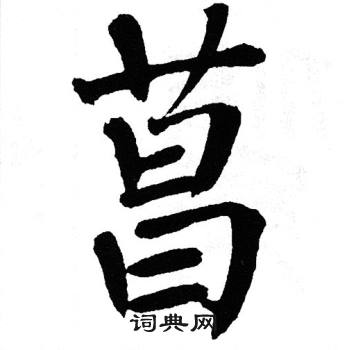 菖
词典网